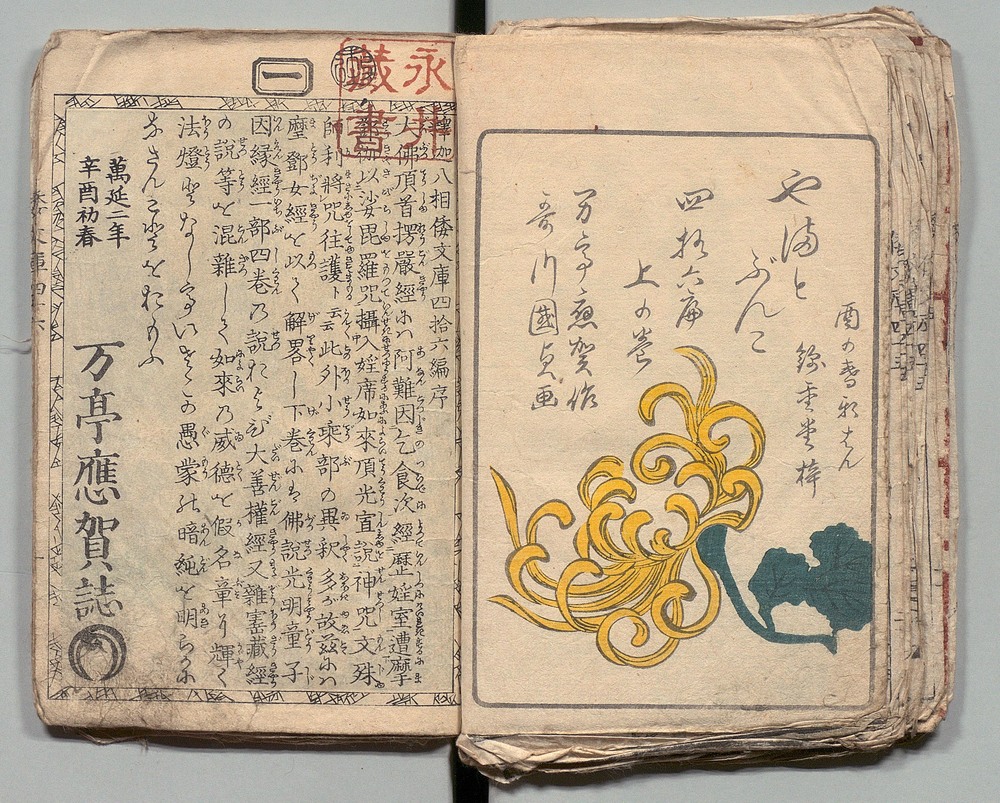 酉の春新はん
錦重堂梓
やまと
ぶんこ
四拾六扁
上の巻
万亭應賀作
哥川國貞画
永井
藏書
一
釋迦八相倭文庫四拾六編序
大佛頂首楞嚴經に八阿難因乞食次經歷婬室遭摩
登伽以娑毘羅咒攝入婬席如來頂光宣說神咒文殊
師利將咒往護ト云云此外小乘部の異釈多が故茲に八
摩鄧女經を以て解畧し下卷にハ佛說光明童子
因縁經一部四卷乃說たらびに大善權經又雜寶藏經
の說等を混雜して如來乃威德を假名章り輝く
法燈となし予いさゝの愚蒙の暗純を明らかに
なさんことをおもふ
萬延二年
辛酉初春
万亭應賀誌